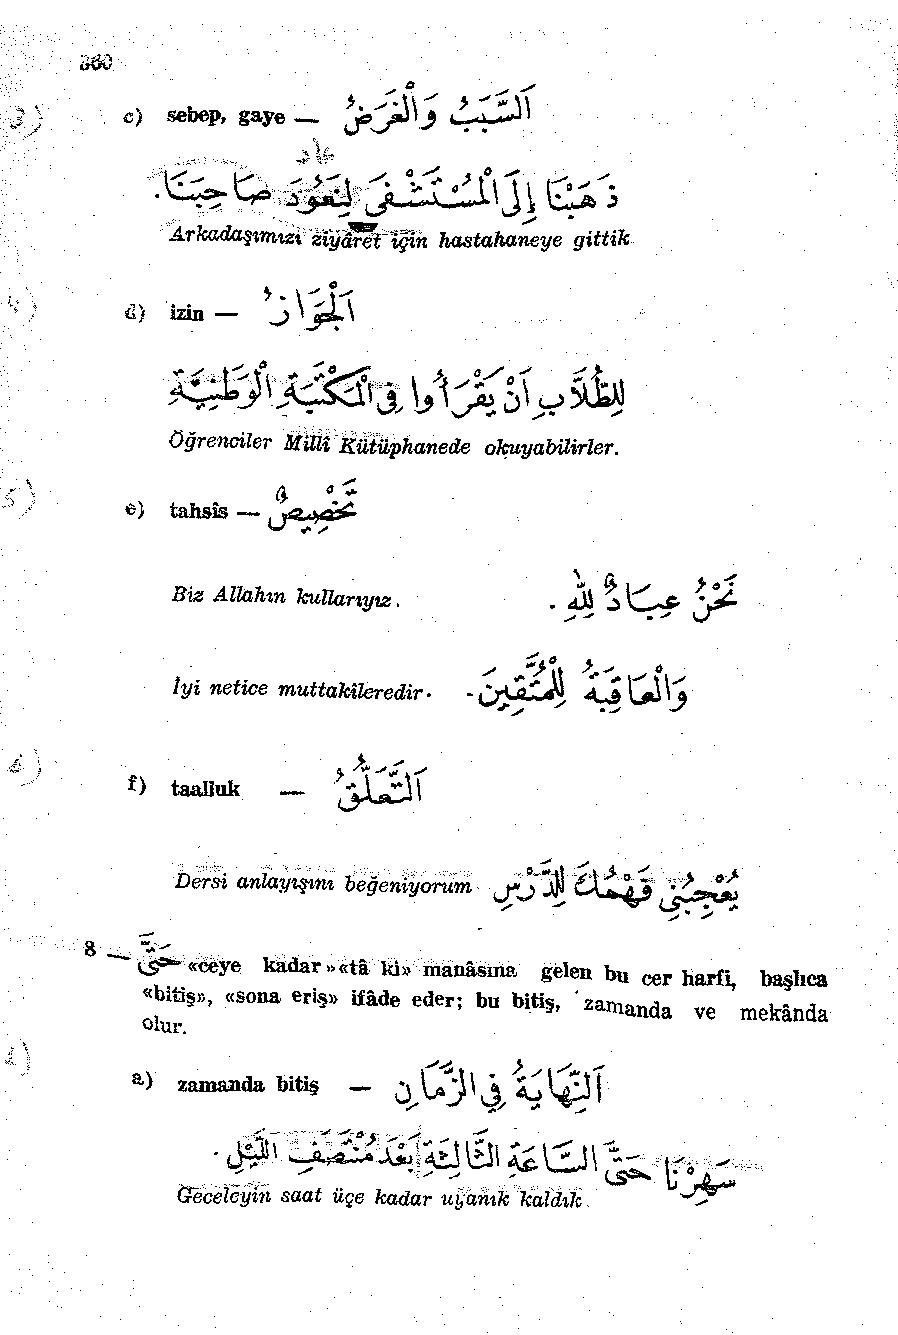 360
3)
c) sebep, gaye — اَلسَّبَبُ وَالْغَرَضُ
عاد
ذَهَبْنَا إِلَى الْمُسْتَشْفَى لِنَعُودَ صَاحِبَنَا.
Arkadaşımızı ziyâret için hastahaneye gittik
4)
d) izin — اَلْجَوَازُ
لِلطُّلَّابِ اَنْ يَقْرَأُوا فِي الْمَكْتَبَةِ الْوَطَنِيَّةِ
Öğrenciler Millî Kütüphanede okuyabilirler.
5)
e) tahsîs — تَخْصِيصٌ
Biz Allahın kullarıyız. نَحْنُ عِبَادٌ لِلّٰهِ.
İyi netice muttakîleredir. وَالْعَاقِبَةُ لِلْمُتَّقِينَ.
6)
f) taalluk — اَلتَّعَلُّقُ
Dersi anlayışını beğeniyorum يُعْجِبُنِي فَهْمُكَ لِلدَّرْسِ
8 — حَتَّى «ceye kadar» «tâ ki» manâsına gelen bu cer harfi, başlıca
«bitiş», «sona eriş» ifâde eder; bu bitiş, zamanda ve mekânda
olur.
a) zamanda bitiş — اَلنِّهَايَةُ فِي الزَّمَانِ
سَهِرْنَا حَتَّى السَّاعَةِ الثَّالِثَةِ بَعْدَ مُنْتَصَفِ اللَّيْلِ.
Geceleyin saat üçe kadar uyanık kaldık.